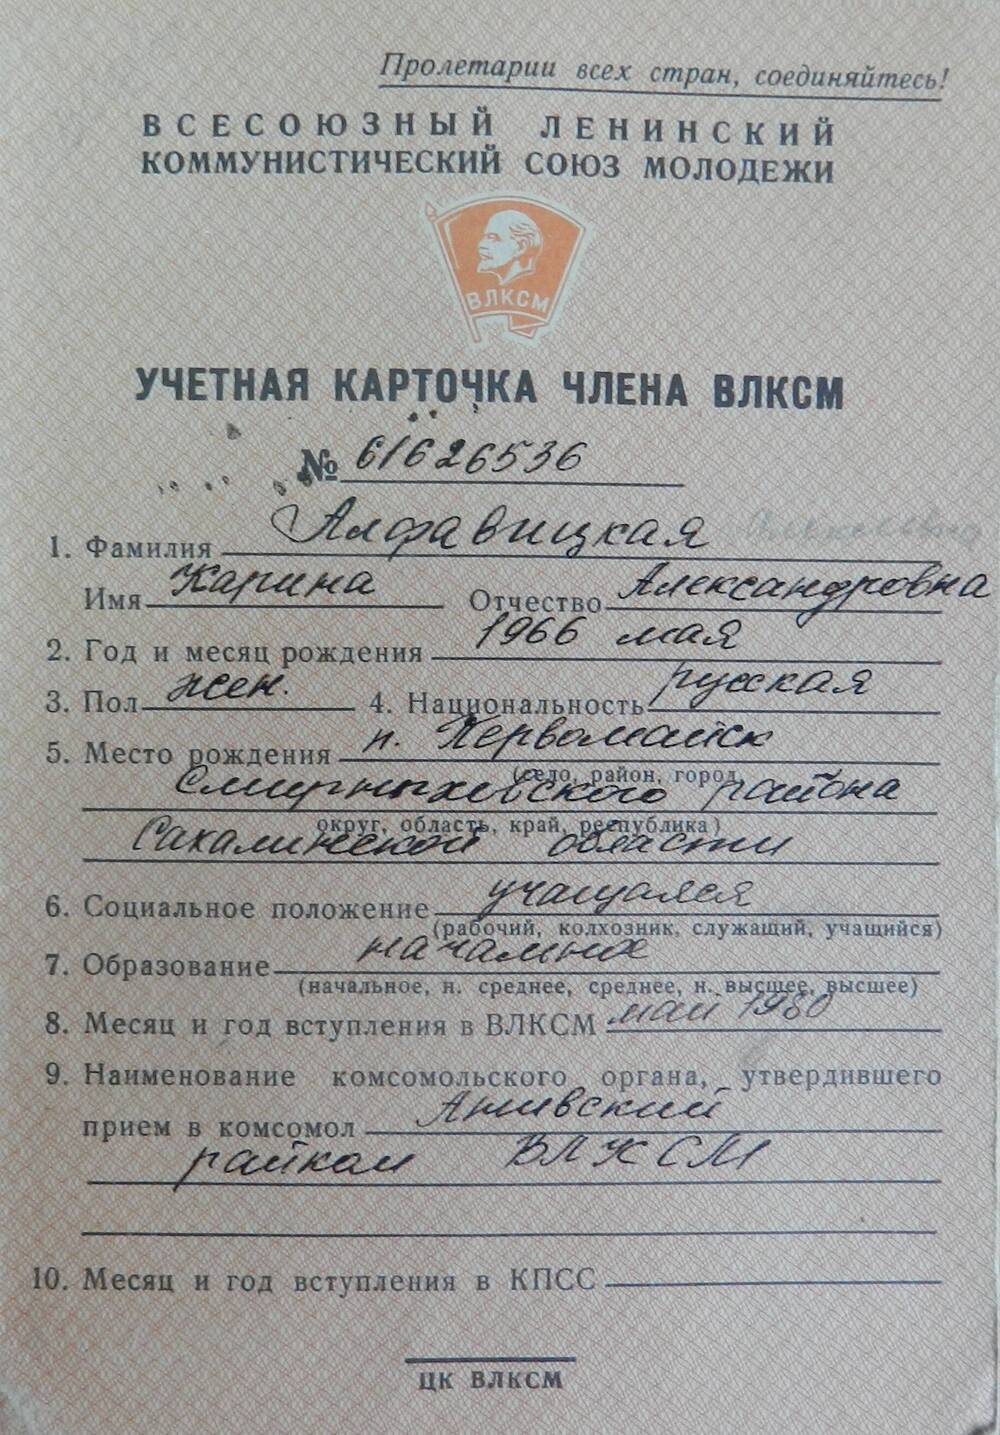 Пролетарии всех стран, соединяйтесь!
ВСЕСОЮЗНЫЙ ЛЕНИНСКИЙ
КОММУНИСТИЧЕСКИЙ СОЮЗ МОЛОДЕЖИ
ВЛКСМ
УЧЕТНАЯ КАРТОЧКА ЧЛЕНА ВЛКСМ
№ 61626536
1. Фамилия Алфавицкая
Имя Карина Отчество Александровна
2. Год и месяц рождения 1966 мая
3. Пол жен. 4. Национальность русская
5. Место рождения п. Первомайск
(село, район, город,
Смирныховского района
округ, область, край, республика)
Сахалинской области
6. Социальное положение учащаяся
(рабочий, колхозник, служащий, учащийся)
7. Образование начальное
(начальное, н. среднее, среднее, н. высшее, высшее)
8. Месяц и год вступления в ВЛКСМ май 1980
9. Наименование комсомольского органа, утвердившего
прием в комсомол Анивский
райком ВЛКСМ
10. Месяц и год вступления в КПСС
ЦК ВЛКСМ